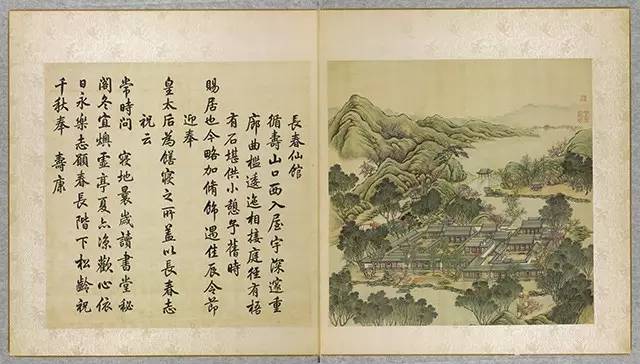 長春仙館
循壽山口西入屋宇深邃重
廊曲檻逶迤相接庭徑有梧
有石堪供小憩予舊時
賜居也今略加脩飾遇佳辰令節
迎奉
皇太后為膳寢之所蓋以長春志
祝云
常時問寢地曩歲讀書堂秘
閣冬宜燠虛亭夏亦涼歡心依
日永樂志願春長階下松齡祝
千秋奉壽康